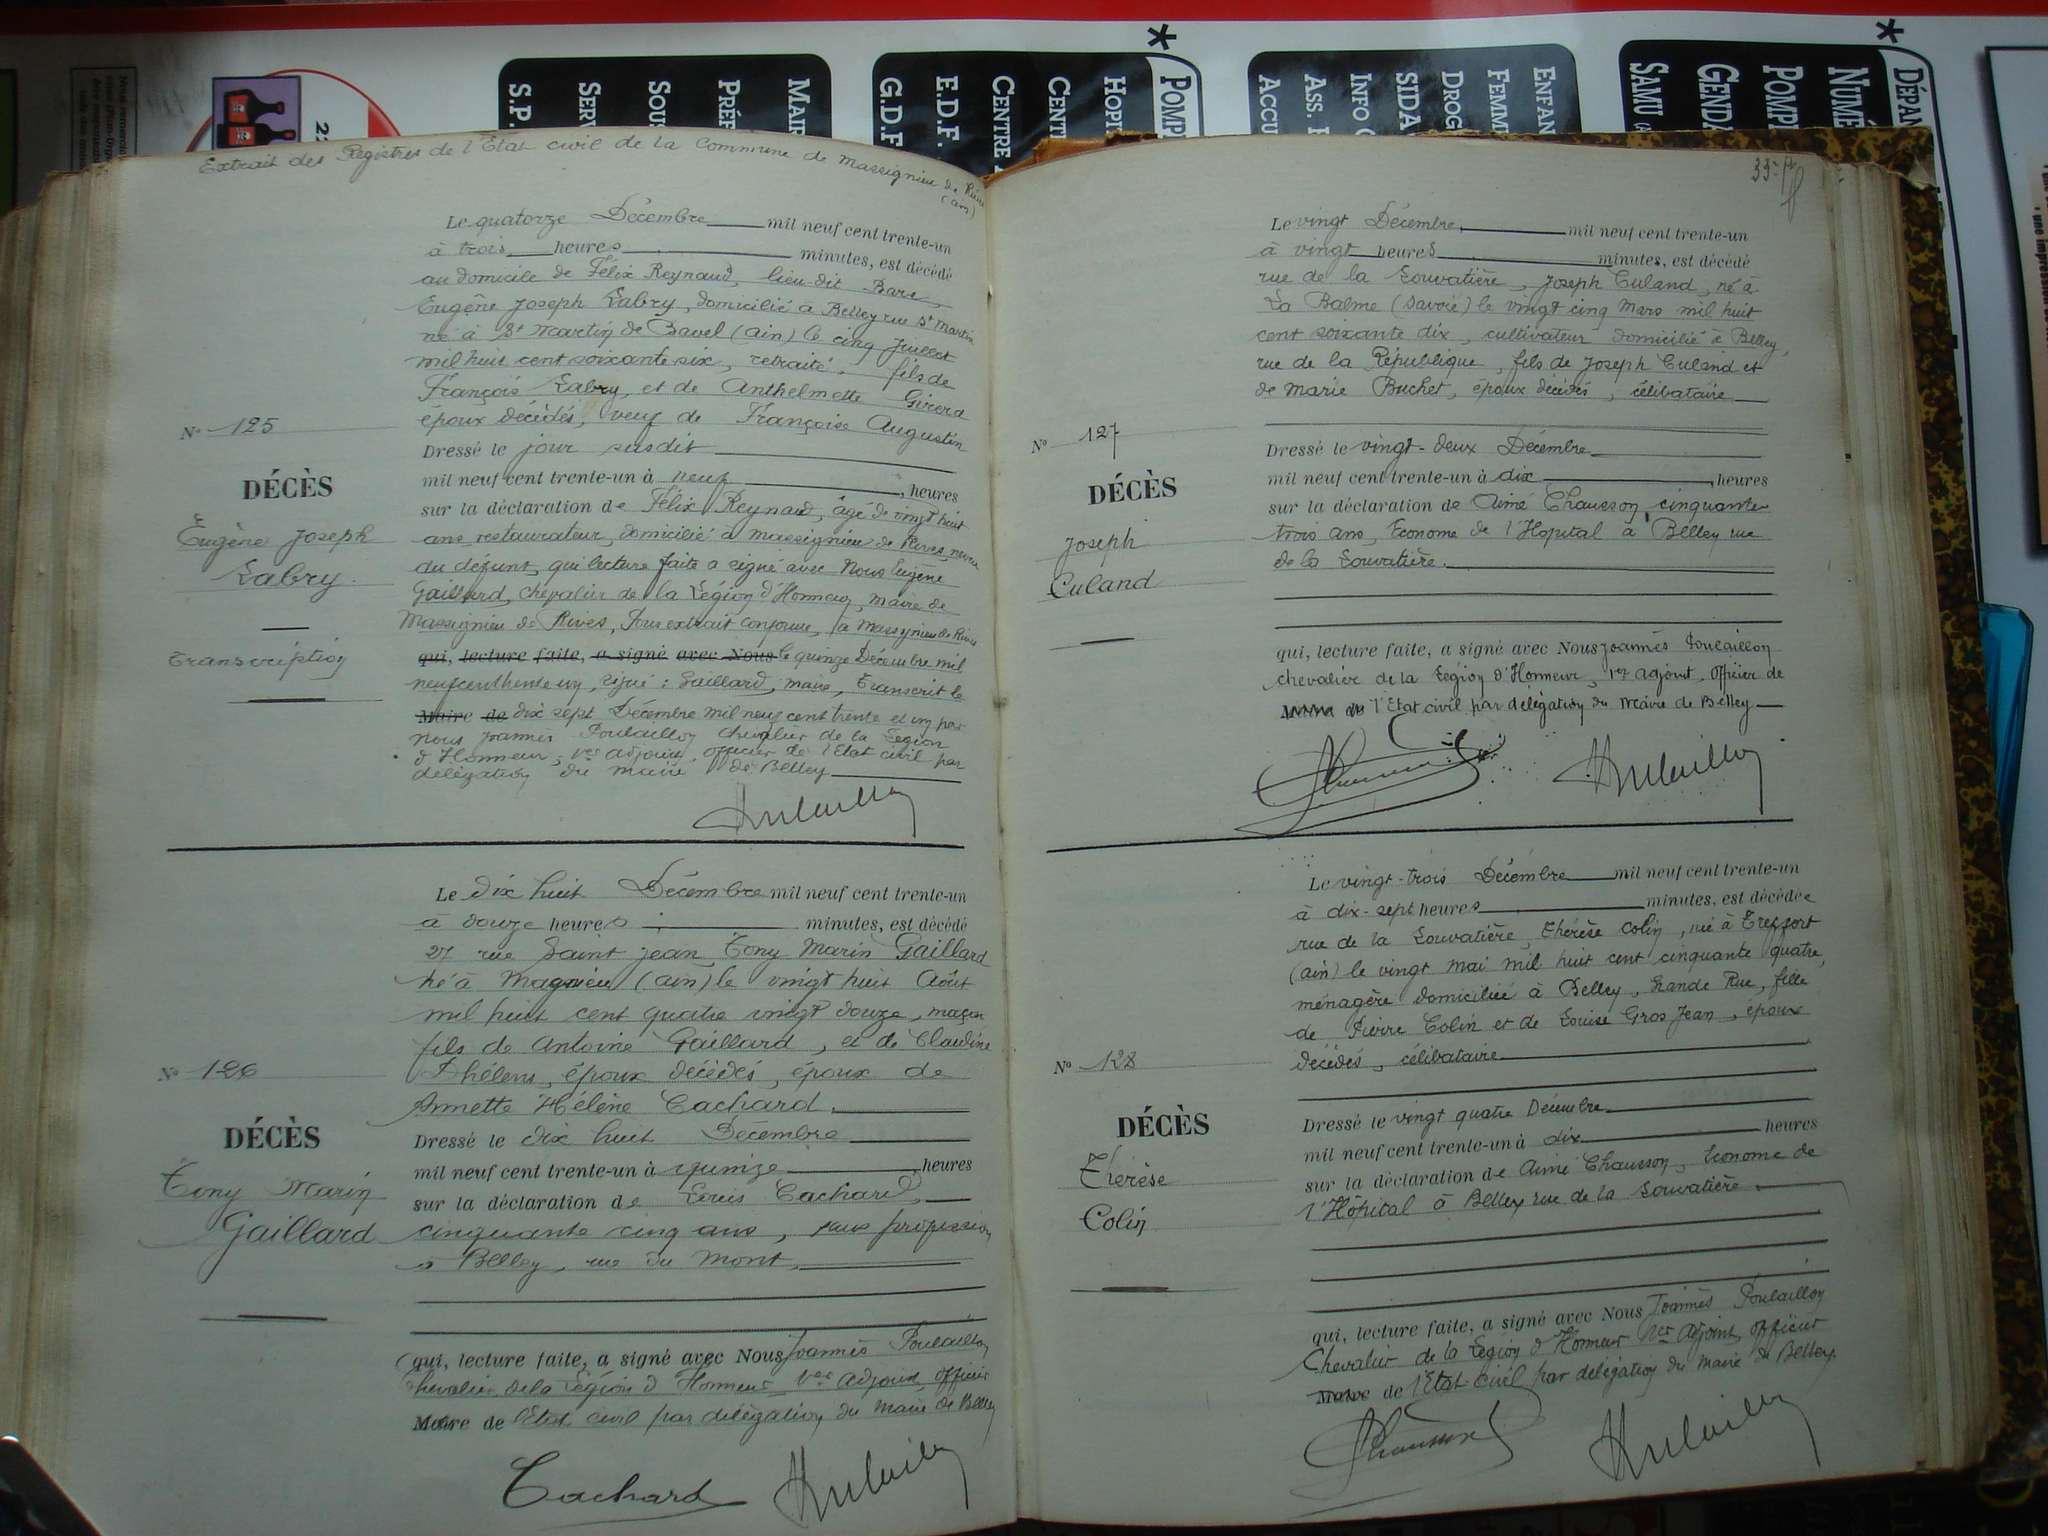 Extrait des Registres de l'État civil de la Commune de Massignieu de Rives
(ain)
Le quatorze Décembre mil neuf cent trente-un
à trois heures minutes, est décédé
au domicile de Félix Reynaud, lieu-dit Bare,
Eugène Joseph Labry, domicilié à Belley rue St Martin
né à St Martin de Bavel (ain) le cinq Juillet
mil huit cent soixante six, retraité, fils de
François Labry, et de Anthelmette Girerd
époux décédés, veuf de Françoise Augustin
Nº 125
Dressé le jour susdit
mil neuf cent trente-un à neuf heures
DÉCÈS
sur la déclaration de Félix Reynaud, âgé de vingt huit
Eugène Joseph
ans, restaurateur, domicilié à Massignieu de Rives, neveu
Labry.
du défunt, qui lecture faite a signé avec Nous Eugène
Gaillard, chevalier de la Légion d'Honneur, maire de
Massignieu de Rives, Pour extrait conforme, à Massignieu de Rives
Transcription
qui, lecture faite, a signé avec Nous le quinze Décembre mil
neuf cent trente un, signé : Gaillard, maire, Transcrit le
Maire de dix sept Décembre mil neuf cent trente et un par
nous Joannès Poulaillon chevalier de la Légion
d'Honneur, 1er adjoint, officier de l'État civil par
délégation du maire de Belley
Le dix huit Décembre mil neuf cent trente-un
à douze heures minutes, est décédé
27 rue Saint Jean, Tony Marin Gaillard
né à Magnieu (ain) le vingt huit Août
mil huit cent quatre vingt douze, maçon
fils de Antoine Gaillard, et de Claudine
Nº 126
Dhélens, époux décédés, époux de
Annette Hélène Cachard.
DÉCÈS
Dressé le dix huit Décembre
mil neuf cent trente-un à quinze heures
Tony Marin
sur la déclaration de Louis Cachard,
Gaillard
cinquante cinq ans, sans profession
à Belley, rue du Mont,
qui, lecture faite, a signé avec Nous Joannès Poulaillon
Chevalier de la Légion d'Honneur 1er adjoint, officier
Maire de l'État civil par délégation du maire de Belley
Cachard
33
Le vingt Décembre mil neuf cent trente-un
à vingt heures minutes, est décédé
rue de la Louvatière, Joseph Culand, né à
La Balme (Savoie) le vingt cinq Mars mil huit
cent soixante dix, cultivateur domicilié à Belley,
rue de la République, fils de Joseph Culand et
de Marie Buchet, époux décédés, célibataire
Nº 127
Dressé le vingt-deux Décembre
mil neuf cent trente-un à dix heures
DÉCÈS
sur la déclaration de Aimé Chausson, cinquante
Joseph
trois ans, Econome de l'Hopital à Belley rue
Culand
de la Louvatière.
qui, lecture faite, a signé avec Nous Joannès Poulaillon
chevalier de la Légion d'Honneur, 1er adjoint, officier de
l'Etat civil par délégation du Maire de Belley
Le vingt-trois Décembre mil neuf cent trente-un
à dix-sept heures minutes, est décédée
rue de la Louvatière, Thérèse Colin, née à Treffort
(ain) le vingt mai mil huit cent cinquante quatre,
ménagère domiciliée à Belley, Grande Rue, fille
de Pierre Colin et de Louise Gros Jean, époux
décédés, célibataire
Nº 128
Dressé le vingt quatre Décembre
mil neuf cent trente-un à dix heures
DÉCÈS
sur la déclaration de Aimé Chausson, Econome de
Thérèse
l'Hôpital à Belley rue de la Louvatière.
Colin
qui, lecture faite, a signé avec Nous Joannès Poulaillon
Chevalier de la Légion d'Honneur 1er Adjoint, officier
Maire de l'Etat-civil par délégation du maire de Belley.
S.P.
SERV
SOU
PRÉF
MAI
G.D.F
E.D.F.
CENTRE
CENT
HOPI
POMP
ACCU
ASS.
INFO
SIDA
DROG
FEMM
ENFAN
SAMU
GENDA
POMPI
NUMÉ
DÉPAN